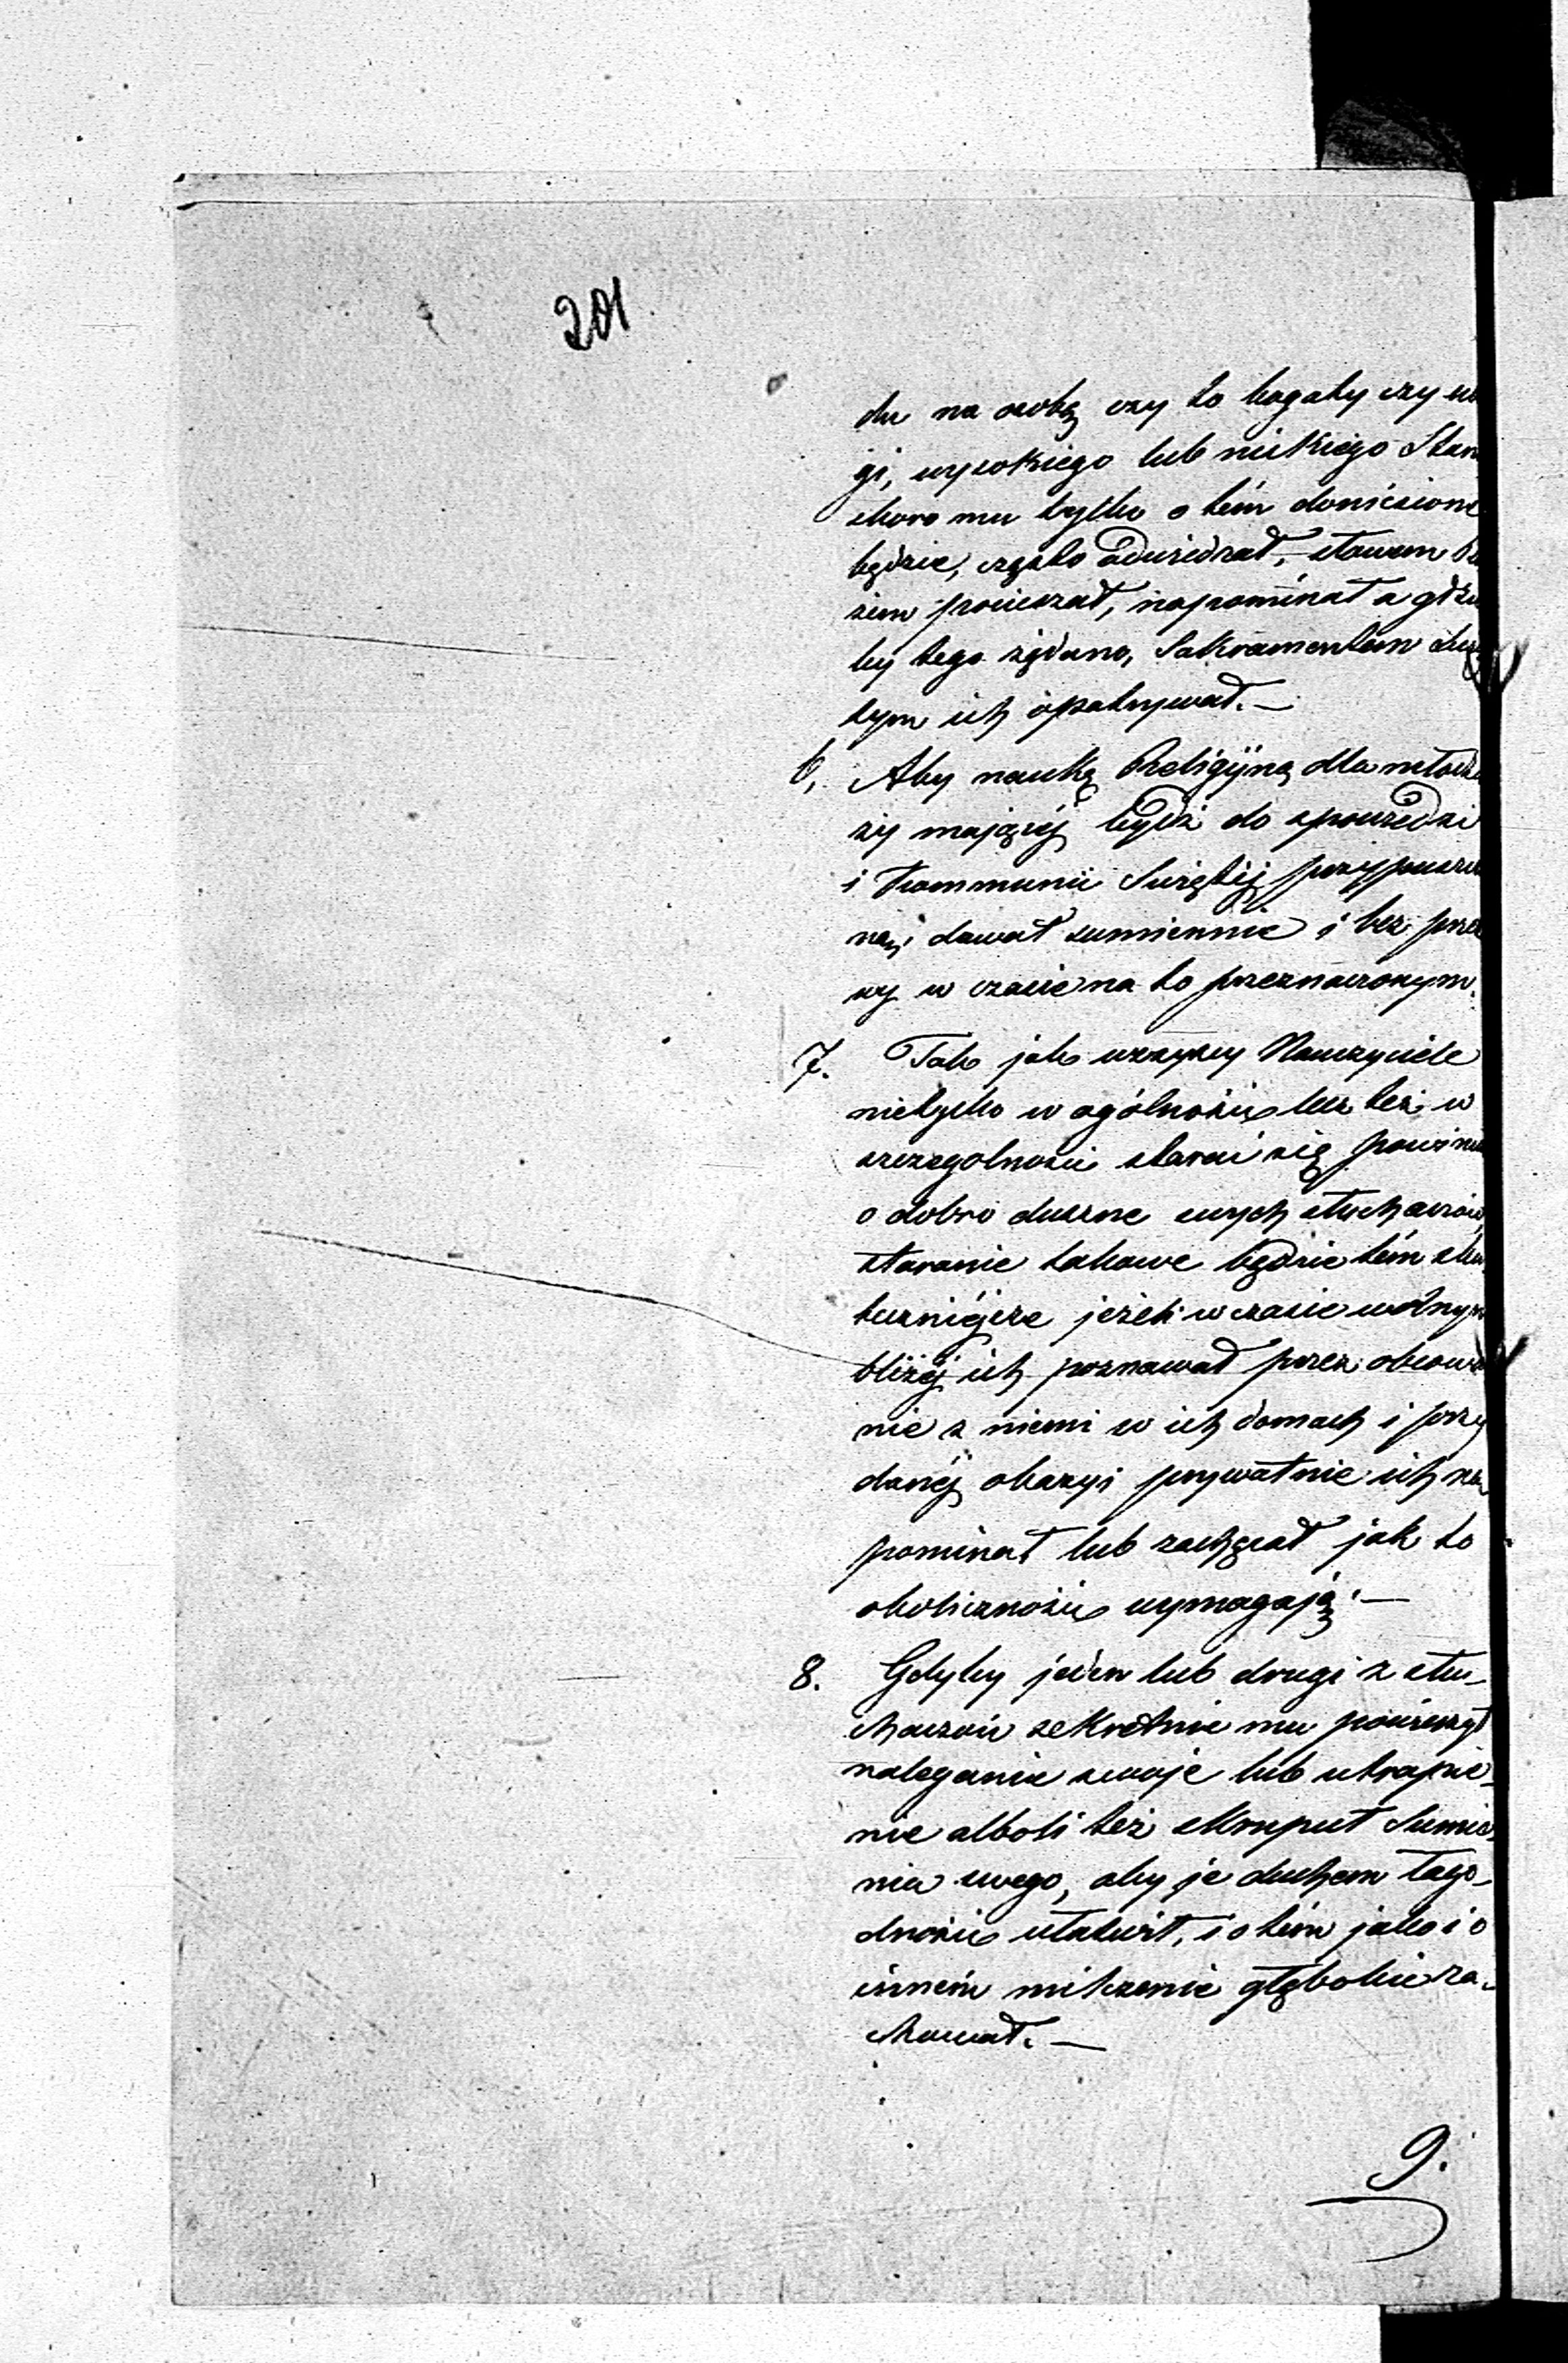 201
du na osobę czy to bogaty czy ubo
gi, wysokiego lub niskiego Stanu
skoro mu tylko o tém doniesiono
będzie, często odwiedzał, słowem Bo
żem pocieszał, napominał a gdzie
by tego żądano, Sakramentem Święs
tym ich opatrywał. —
6, Aby naukę Religijną dla młodzie
ży mającéj bydź do spowiedzi
i Kommunii Świętéj przypuszczo
ną, dawał sumiennie i bez prze
wy w czasie na to przeznaczonym.
7. Tak jak wszyscy Nauczyciele
nietylko w ogólności lecz też w
szczególności starać się powinni
o dobro duszne swych słuchaczów,
staranie takowe będzie tém sku
teczniéjsze jeżeli w czasie wolnym
bliżéj ich poznawał przez obcowa
nie z niemi w ich domach i przy
danéj okazyi prywatnie ich na
pominał lub zachęcał jak to
okoliczności wymagają. —
8. Gdyby jeden lub drugi z słu-
chaczów sekretnie mu powierzył
naleganie swoje lub utrapie-
nie alboli też skrupuł Sumie
nia swego, aby je duchem łago-
dności ułatwił, i o tém jako i o
inném milczenie głębokie za-
chował. —
9.